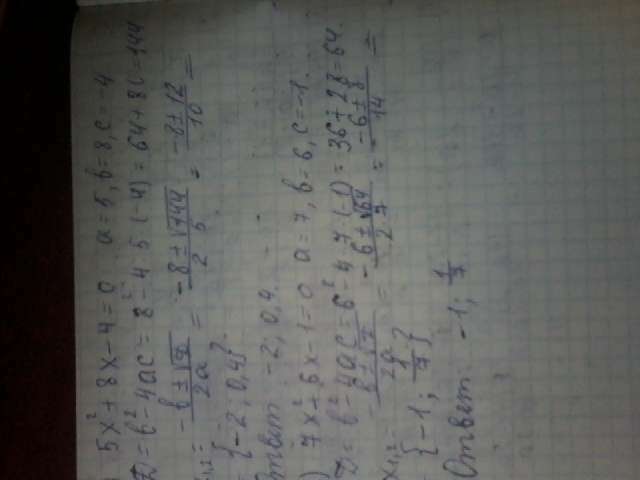 ) 5x² + 8x - 4 = 0 a = 5, b = 8, c = -4
D = b² - 4ac = 8² - 4 · 5 · (-4) = 64 + 80 = 144
x₁,₂ = (-b ± √D)/(2a) = (-8 ± √144)/(2 · 5) = (-8 ± 12)/10 =
= {-2; 0,4}
Ответ: -2; 0,4.
) 7x² + 6x - 1 = 0 a = 7, b = 6, c = -1.
D = b² - 4ac = 6² - 4 · 7 · (-1) = 36 + 28 = 64.
x₁,₂ = (-b ± √D)/(2a) = (-6 ± √64)/(2 · 7) = (-6 ± 8)/14 =
= {-1; 1/7}
Ответ: -1; 1/7